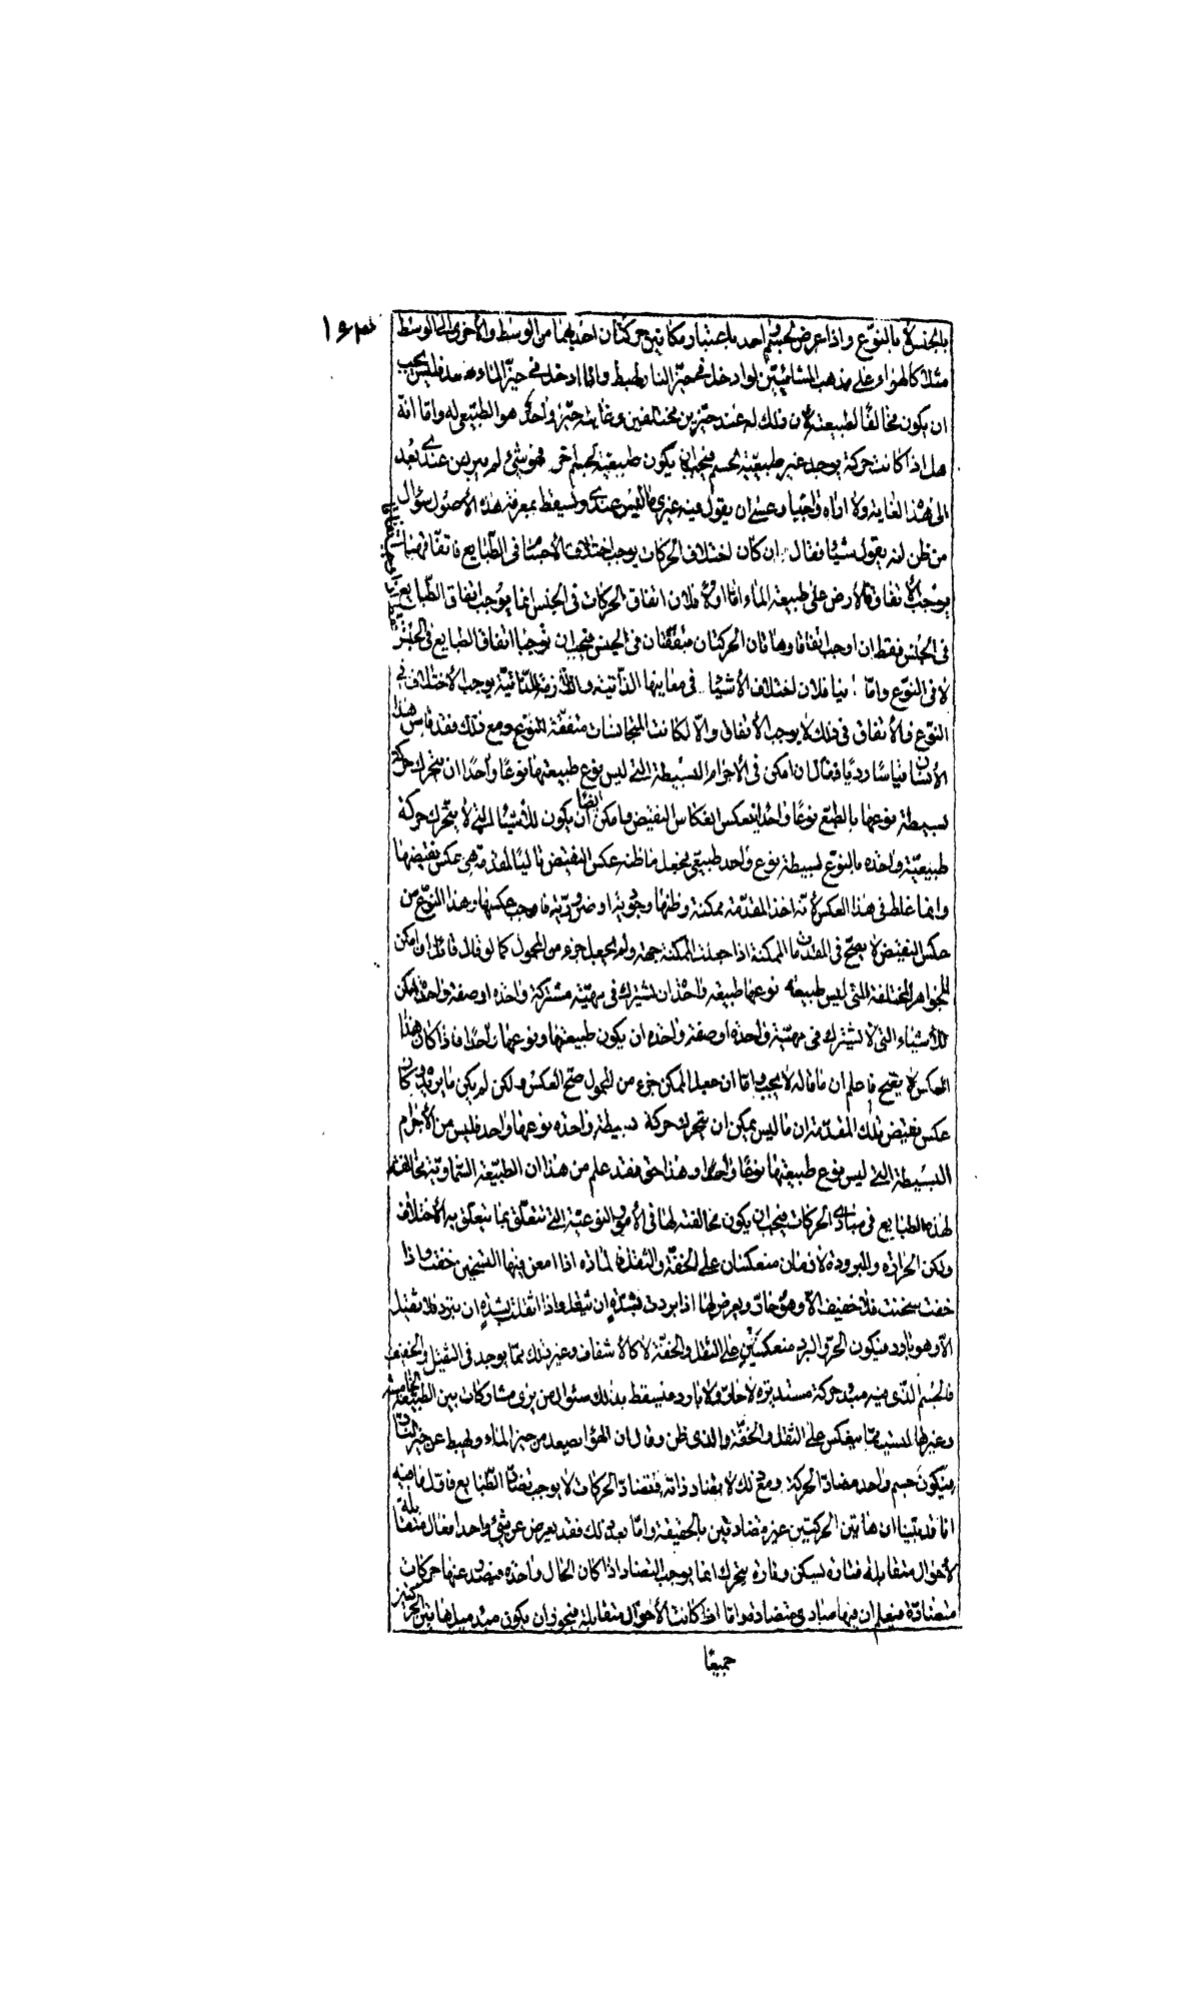 ١٦٣
بالجنس لا بالنوع واذا عرض لجسم واحد باعتبار مكانين حركتان احديهما من الوسط والأخرى الى الوسط
مثلا كالهواء على مذهب المشائيين لو ادخل فى حيز النار لهبط واذا ادخل فى حيز الماء صعد فليس يجب
ان يكون مخالفا لطبيعته لأن ذلك له عند حيزين مختلفين وغايته حيز واحد هو الطبيعى له واما انه
هل اذا كانت حركة يوجد غير طبيعية لجسم فيجب ان يكون طبيعية لجسم آخر فهو شئ لم يبرهن عندى بعد
الى هذا الغاية ولا اراه واجبا وعسى ان يقول فيه غيرى ما ليس عندى وتسقط بمعرفة هذه الأصول سؤال
من ظن انه يقول شيئا فقال ان كان اختلاف الحركات يوجب اختلاف الأجسام فى الطبايع فاتفاقهما
يوجب الأتفاق فالأرض على طبيعة الماء اما اولا فلان اتفاق الحركات فى الجنس انما يوجب اتفاق الطبايع
فى الجنس فقط ان اوجب اتفاقا وهاتان الحركتان متفقتان فى الجنس فيجب ان توجبا اتفاق الطبايع فى الجنس
لا فى النوع واما ثانيا فلان اختلاف الأشياء فى معانيها الذاتية واللازمة للذاتية يوجب الأختلاف فى
النوع والأتفاق فى ذلك لا يوجب الأتفاق والا لكانت المتجانسات متفقة النوع ومع ذلك فقد قاس هذا
الأنسان قياسا رديا فقال ان امكن فى الأجرام البسيطة التى ليس نوع طبيعتها نوعا واحدا ان يتحرك حركة
بسيطة نوعها بالطبع نوعا واحدا ينعكس انعكاس النقيض فامكن ايضا ان يكون للأشياء التى لا يتحرك حركة
طبيعية واحده بالنوع بسيطة نوع واحد طبيعى فجعل ما ظنه عكس النقيض تاليا لمقدمة هى عكس نقيضها
وانما غلط فى هذا العكس لأنه اخذ المقدمة ممكنة وظنها وجوبية او ضرورية فاوجب عكسها وهذا النوع من
عكس النقيض لا يصح فى المقدمات الممكنة اذا جعلت الممكنة جهة ولم يجعل جزء من المحمول كما لو قال قائل ان امكن
للجواهر المختلفة التى ليس طبيعة نوعها طبيعة واحدة ان تشترك فى مهية مشتركة واحده او صفة واحدة امكن
للأشياء التى لا تشترك فى مهية واحدة او صفة واحده ان يكون طبيعتها ونوعها واحدا فاذا كان هذا
العكس لا يصح فاعلم ان ما قاله لا يجب واما ان جعل الممكن جزء من المحمول صح العكس ولكن لم يكن ما يريده كان
عكس نقيض تلك المقدمة ان ما ليس يمكن ان يتحرك حركة بسيطة واحده نوعها واحد فليس من الأجرام
البسيطة التى ليس نوع طبيعتها نوعا واحدا وهذا حق فقد علم من هذا ان الطبيعة السماوية مخالفة
لهذه الطبايع فى مبادى الحركات فيجب ان يكون مخالفته لها فى الأمور النوعية التى تتعلق بما يتعلق به الأختلاف
ولكن الحرارة والبرودة لازمان منعكسان على الخفة والثقل لأن المادة اذا امعن فيها التسخين خفت واذا
خفت سخنت فلا خفيف الا وهو حار ويعرض لها اذا بردت بشدة ان تثقل واذا اثقلت بشدة ان تبرد فلا ثقيل
الا وهو بارد فيكون الحر والبرد منعكسين على الثقل والخفة لا كالأشفاف وغير ذلك مما يوجد فى الثقيل والخفيف
فالجسم الذى فيه مبدء حركة مستديرة لا حار ولا بارد فيسقط بذلك سئوال من يرى مشاركات بين الطبيعة الخامسة
وغيرها ليست مما ينعكس على الثقل والخفة والذى ظن وقال ان الهواء يصعد من حيز الماء ولهبط عن حيز النار
فيكون جسم واحد مضاد الحركة ومع ذلك لا يضاد ذاته فتضاد الحركات لا يوجب تضاد الطبايع فاول ما فيه
انا قد بينا ان هاتين الحركتين غير متضادتين بالحقيقة واما بعد ذلك فقد يعرض عن شئ واحد افعال متقابلة
لأحوال متقابلة فتارة يسكن وتارة يتحرك انما يوجب التضاد اذا كان الحال واحدة فيصدر عنها حركات
متضادة فيعلم ان فيها مبادى متضادة واما اذا كانت الأحوال متقابلة فيجوز ان يكون مبدء ميل هاتين الحركتين
جميعا